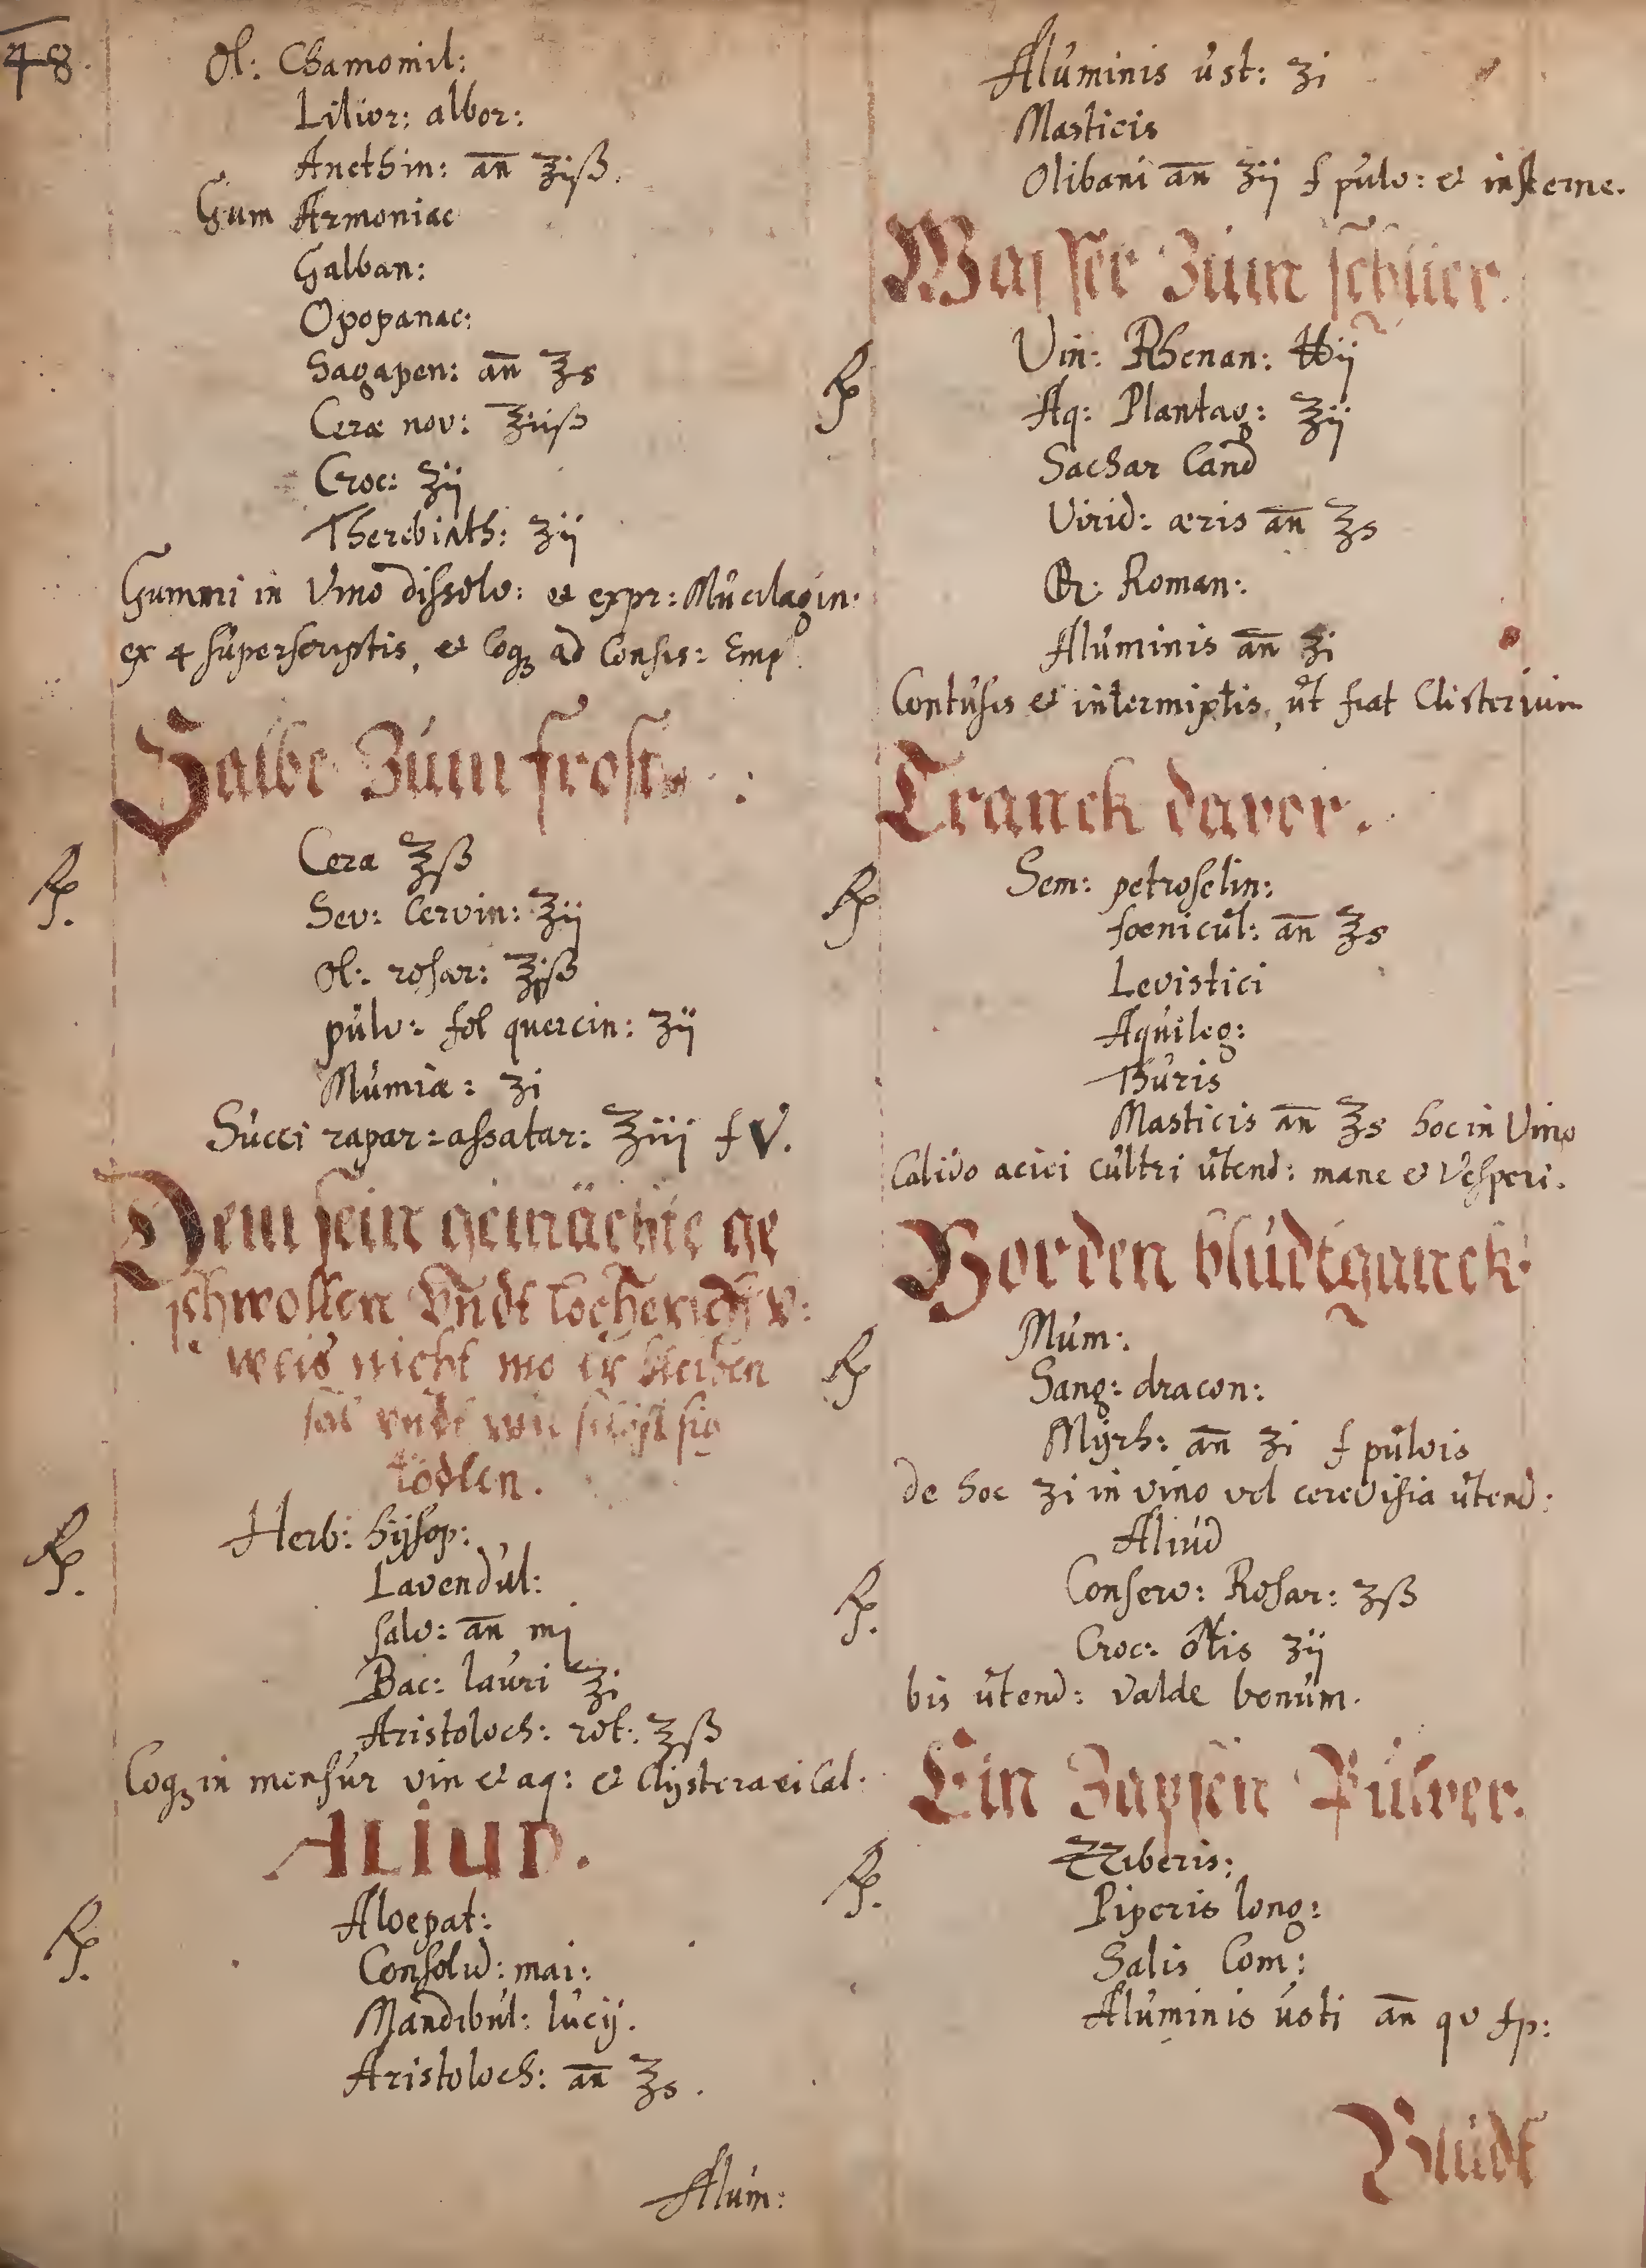 48.
Ol: Chamomil:
Lilior: albor:
Anethin: an̄ ℥iß.
Gum Armoniac
Galban:
Opopanac:
Sagapen: an̄ ℥s
Ceræ nov: ℥iiß
Croc: ʒij
Therebinth: ʒij
Gummi in Vino dissolv: et expr: Mucilagin:
ex 4 superscriptis, et coqꝫ ad Consis: Emp:
Salbe Zum frost :
℞.
Cera ℥ß
Sev: Cervin: ℥ij
Ol: rosar: ℥iß
pulv: fol quercin: ʒij
Mumiæ: ʒi
Succi rapar: assatar: ℥iij f V.
Dem sein gemächte ge
schwollen Vndt locherich v:
weis nicht wo er bleiben
sol vndt wil selbst sig
tödten.
℞.
Herb: hÿsop:
Lavendul:
salv: an̄ mj
Bac: lauri ℥i
Aristoloch: rot: ʒß
Coqꝫ in mensur vin et aq: et Clÿstera ei Cal:
ALIUD.
℞.
Aloepat:
Consolid: mai:
Mandibul: lucij.
Aristoloch: an̄ ℥s.
Alum:
Aluminis ust: ʒi
Masticis
Olibani an̄ ʒij f pulv: et insterne.
Wasser Zum schlier.
℞
Vin: Rhenan: ℔ij
Aq: Plantag: ℥ij
Sachar Cand
Virid: æris an̄ ℥s
Roman:
Aluminis an̄ ʒi
Contusis et intermixtis, ut fiat Clisterium
Tranck davor.
℞
Sem: petroselin:
fœnicul: an̄ ℥s
Levistici
Aquileg:
Thuris
Masticis an̄ ℥s hoc in Vino
Calido aciei cultri utend: mane et Vesperi.
Vor den bludtganck.
℞
Mum:
Sang: dracon:
Mÿrh: an̄ ʒi f pulvis
de hoc ʒi in vino vel cerevisia utend:
Aliud
℞.
Conserv: Rosar: ʒß
Croc: ʒij
bis utend: valde bonum.
Ein Zapfen Pulver.
℞.
Zziberis:
Piperis long:
Salis Com:
Aluminis usti an̄ qv fp:
Bludt